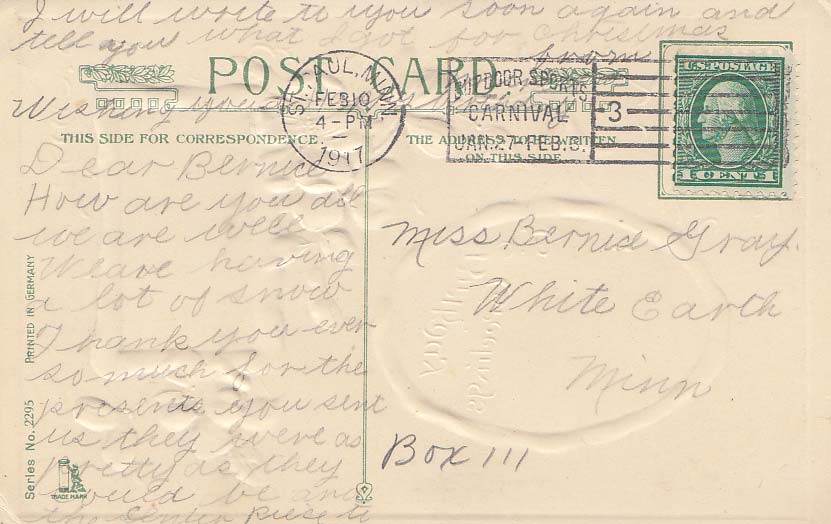 I will write to you soon again and
tell you what I got for Christmas
from
POST CARD
Wishing you
ST. PAUL, MINN
FEB 10
4-PM
1917
OUTDOOR SPORTS
CARNIVAL
JAN. 27-FEB. 3.
3
U.S. POSTAGE
1 CENT 1
THIS SIDE FOR CORRESPONDENCE.
THE ADDRESS TO BE WRITTEN
ON THIS SIDE
Dear Bernice
How are you all
we are well
We are having
a lot of snow
Thank you ever
so much for the
presents you sent
us they were as
pretty as they
could be and
the center piece to
Miss. Bernice Gray.
White Earth
Minn
Box 111
PRINTED IN GERMANY
Series No. 2295
TRADE MARK